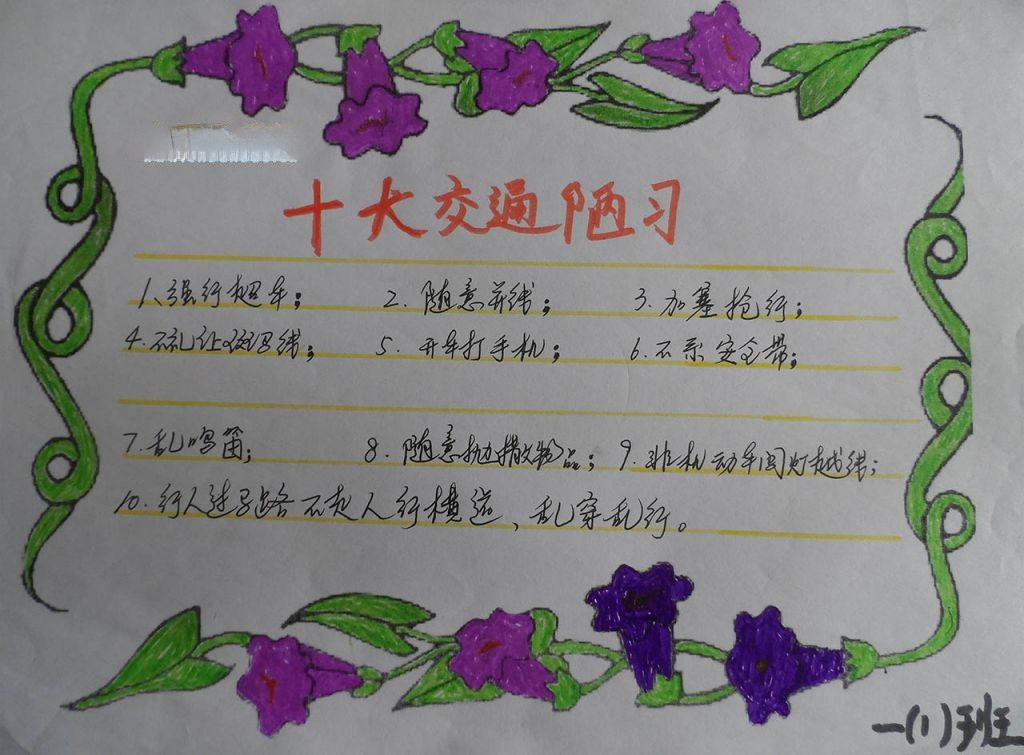 十大交通陋习
1、强行超车; 2. 随意并线; 3. 加塞抢行;
4. 不礼让斑马线; 5. 开车打手机; 6. 不系安全带;
7. 乱鸣笛; 8. 随意抛撒物品; 9. 非机动车闯灯越线;
10. 行人过马路不走人行横道、乱穿乱行。
一(1)班